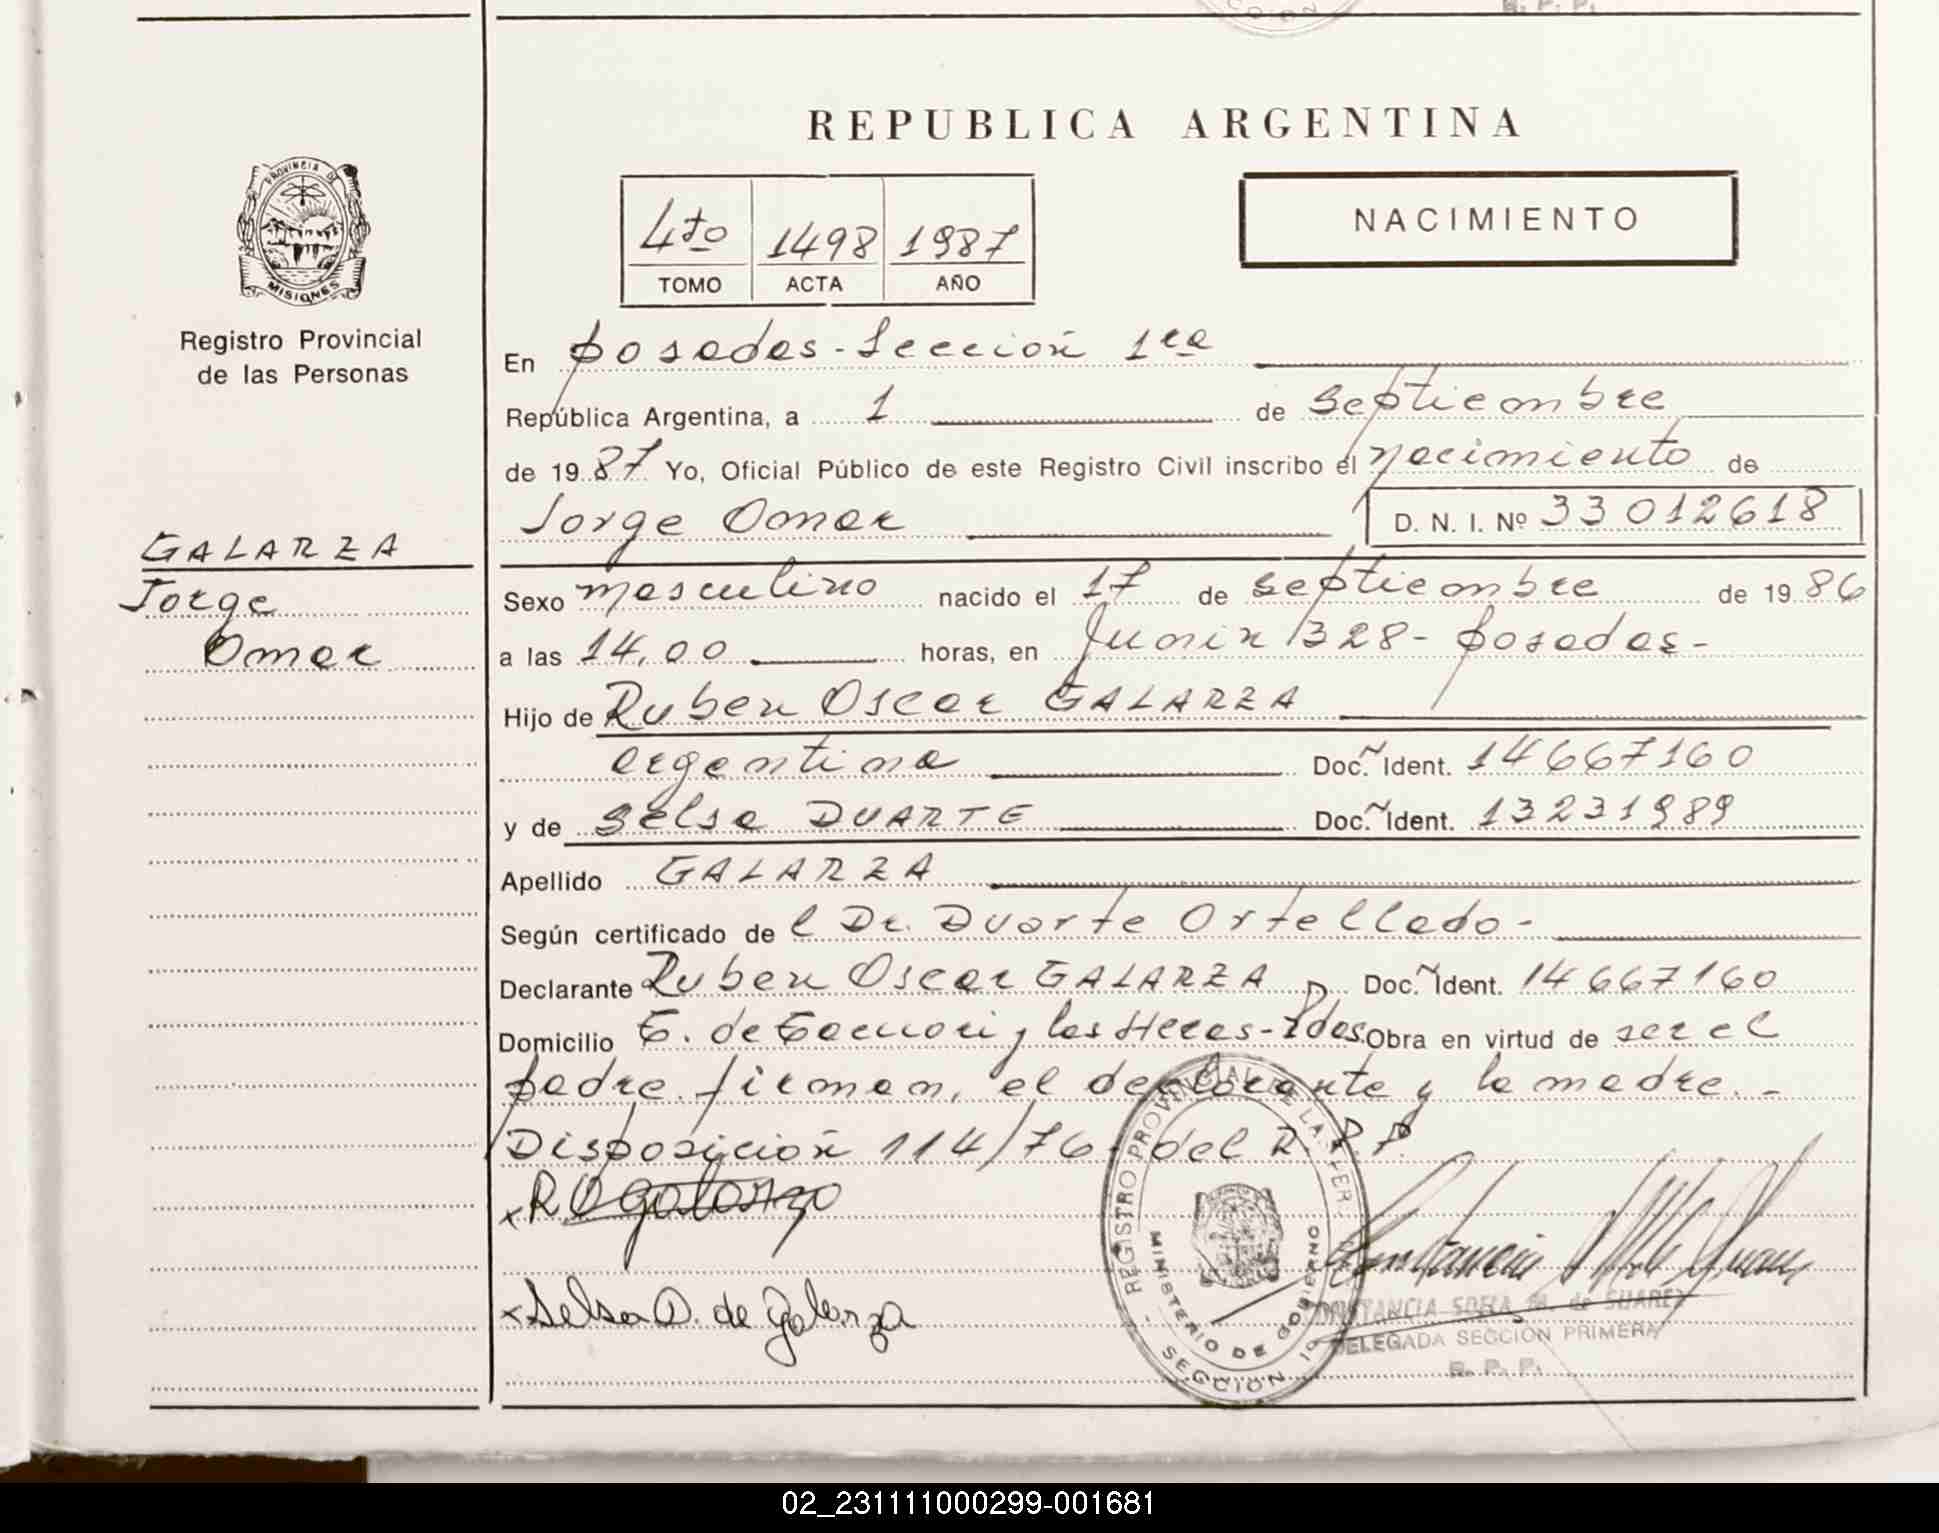 CCION
R. P. P.
REPUBLICA ARGENTINA
PROVINCIA DE
MISIONES
Registro Provincial
de las Personas
4to 1498 1987
TOMO ACTA AÑO
NACIMIENTO
En Posadas - Sección 1ra
República Argentina, a 1 de septiembre
de 1987 Yo, Oficial Público de este Registro Civil inscribo el nacimiento de
Jorge Omar D. N. I. Nº 33012618
GALARZA
Jorge
Omar
Sexo masculino nacido el 17 de septiembre de 1986
a las 14,00 horas, en Junin 1328 - Posadas -
Hijo de Ruben Oscar GALARZA
argentina Doc. Ident. 14667160
y de Selsa DUARTE Doc. Ident. 13231989
Apellido GALARZA
Según certificado de l Dr. Duarte Ortellado -
Declarante Ruben Oscar GALARZA Doc. Ident. 14667160
Domicilio T. de Tacuari y las Heras - Pdas. Obra en virtud de ser el
padre. firman, el declarante y la madre. -
Disposición 114/76 - del R. P. P.
x R O Galarza
x Selsa D. de Galarza
REGISTRO PROVINCIAL DE LAS PER
MINISTERIO DE GOBIERNO
SECCION 1
CONSTANCIA SOFIA M. de SUAREZ
DELEGADA SECCION PRIMERA
R. P. P.
02_231111000299-001681